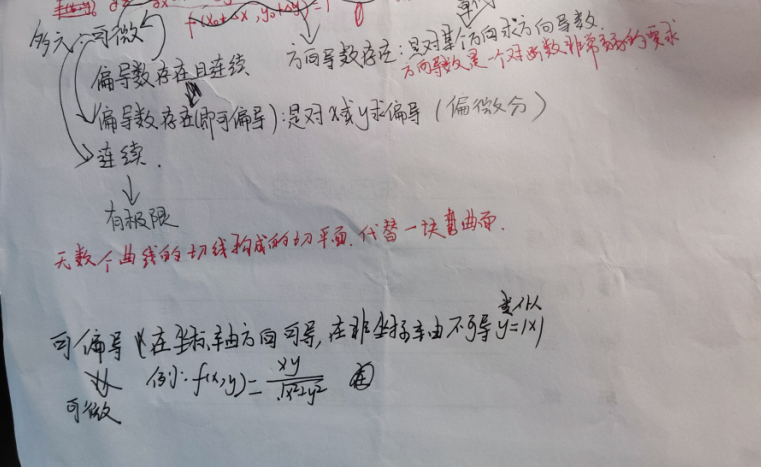 f(x₀+Δx, y₀+Δy)
多元:可微
方向导数存在:是对某个方向求方向导数
方向导数是一个对函数非常弱的要求
偏导数存在且连续
偏导数存在(即可偏导):是对x或y求偏导(偏微分)
连续.
有极限
无数个曲线的切线构成的切平面,代替一块弯曲面.
可偏导(在坐标轴方向可导,在非坐标轴由不可导 类似 y=|x|
例:f(x,y)= xy/√x²+y²
可微